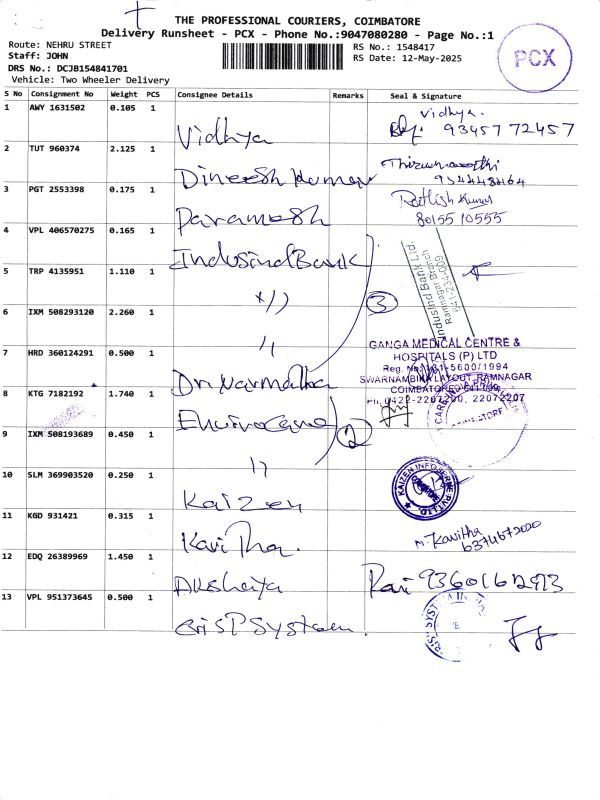 THE PROFESSIONAL COURIERS, COIMBATORE
Delivery Runsheet - PCX - Phone No.:9047080280 - Page No.:1
Route: NEHRU STREET
Staff: JOHN
DRS No.: DCJB154841701
Vehicle: Two Wheeler Delivery
RS No.: 1548417
RS Date: 12-May-2025
PCX
S No Consignment No Weight PCS Consignee Details Remarks Seal & Signature
1 AWY 1631502 0.105 1 Vidhya Vidhya. 93457 72457
2 TUT 960374 2.125 1 Dineesh Kumar
3 PGT 2553398 0.175 1 Paramesh Kumar 80155 10555
4 VPL 406570275 0.165 1 IndusindBank
IndusInd Bank Ltd.
Ramnagar Branch
641-234-009
5 TRP 4135951 1.110 1 "
6 IXM 508293120 2.260 1 " 3
7 HRD 360124291 0.500 1 Dr. Narmatha
GANGA MEDICAL CENTRE &
HOSPITALS (P) LTD
Reg. No. 181-5600/1994
SWARNAMBIKA LAYOUT, RAMNAGAR
COIMBATORE
Ph. 0422-2207200, 22072207
8 KTG 7182192 1.740 1 Envirocare 2
COIMBATORE
9 IXM 508193689 0.450 1 "
10 SLM 369903520 0.250 1 Kaizen
KAIZEN INFOSERVE PVT LTD
11 KGD 931421 0.315 1 Kavitha. M. Kavitha
6374672020
12 EDQ 26389969 1.450 1 Akshaya Ravi
13 VPL 951373645 0.500 1 CriSP System.